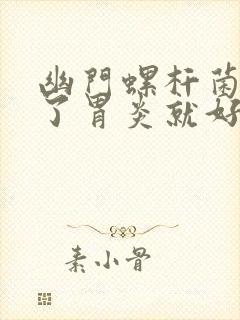 幽門螺杆菌
了胃炎就好
素小骨